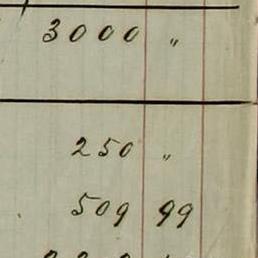 3000 "
250 "
509 99